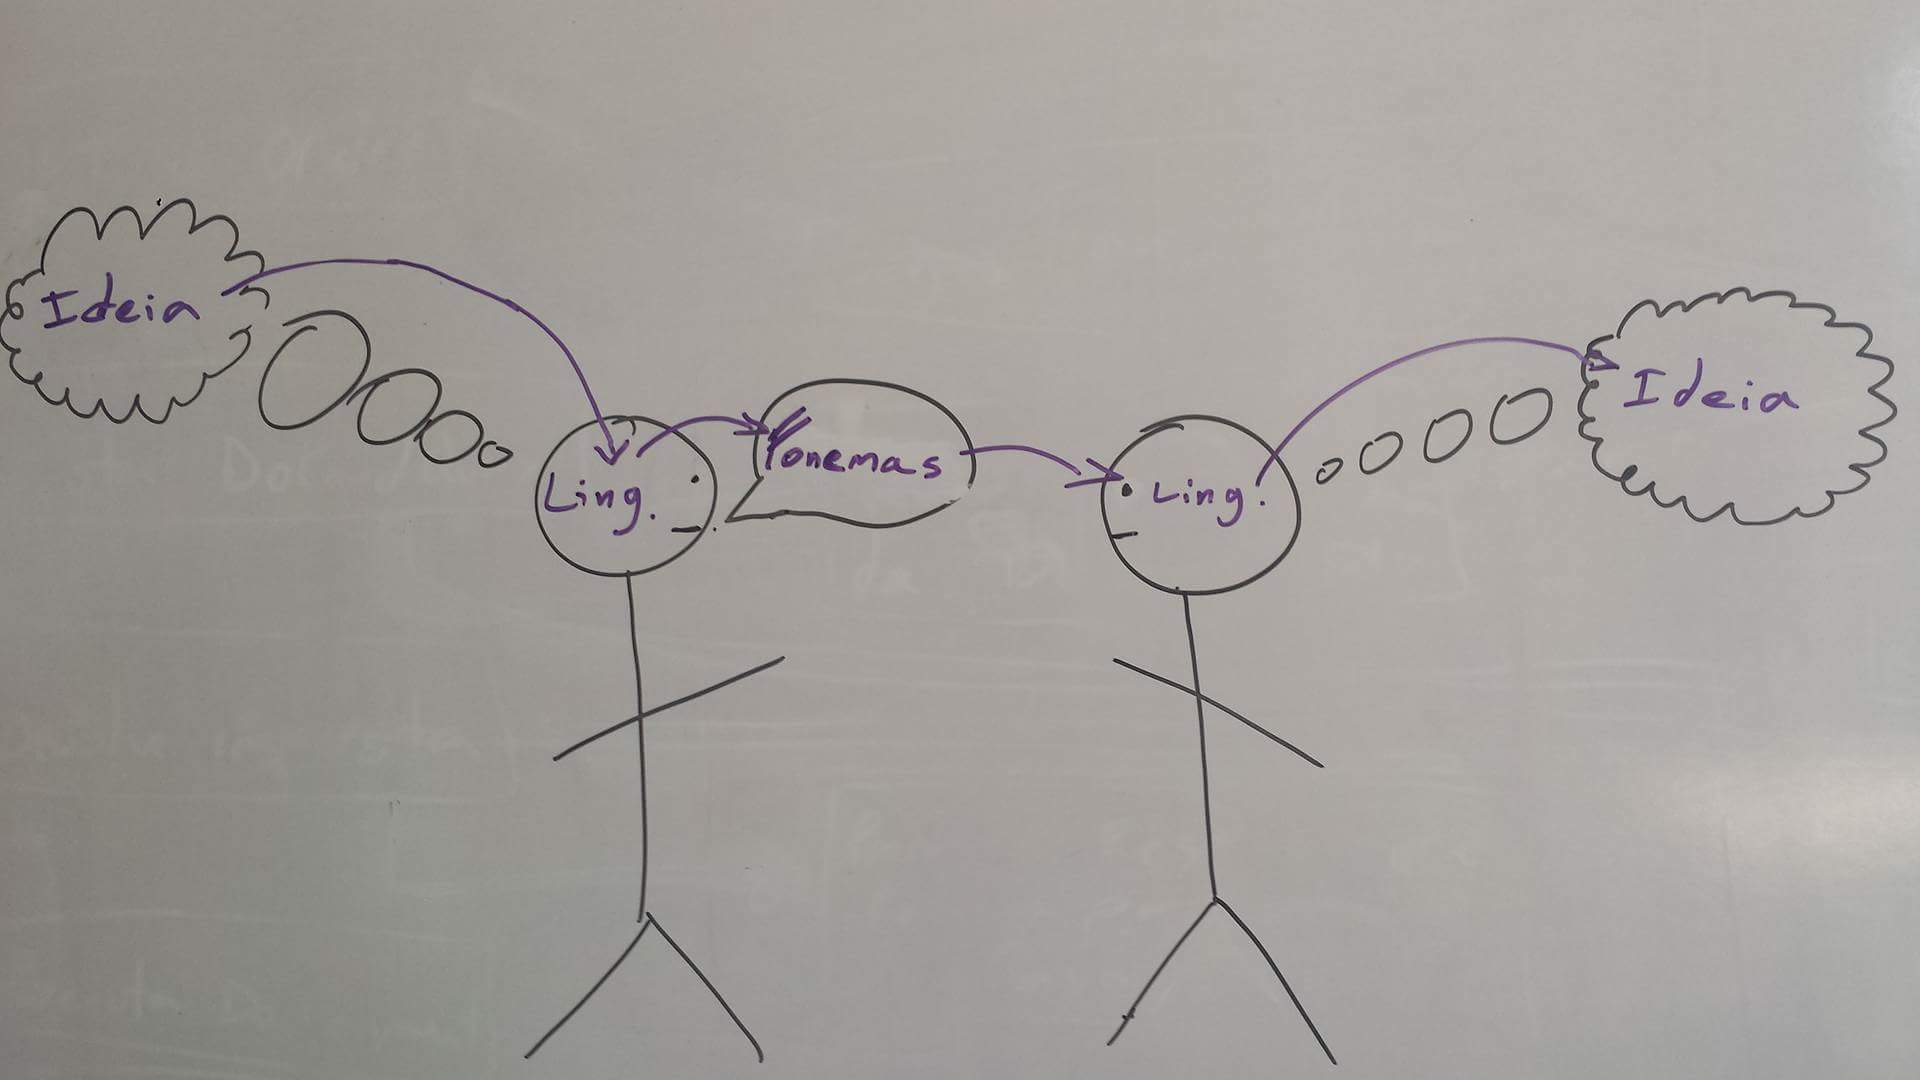 Ideia
Ling.
Fonemas
Ling.
Ideia